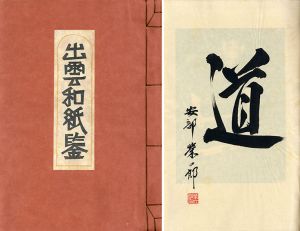 出雲和紙鑑
道
安部榮一郎